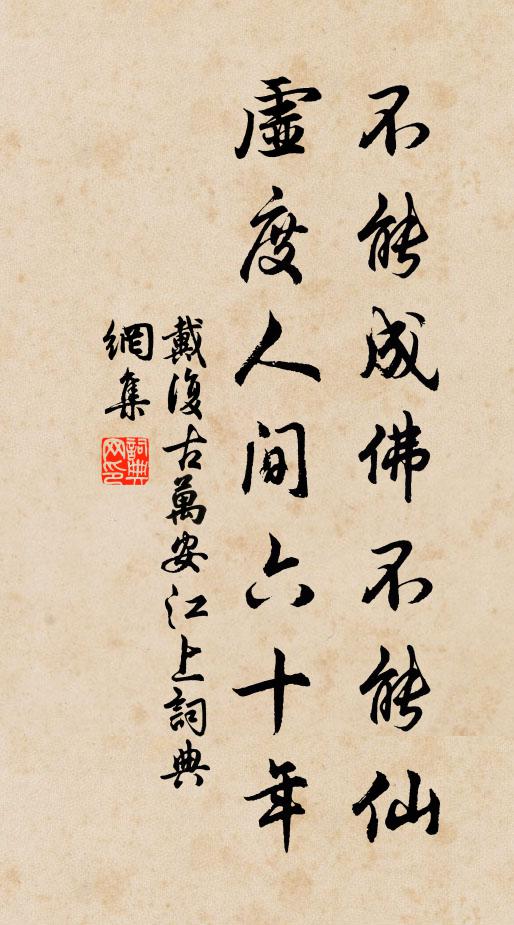 不能成佛不能仙
虛度人間六十年
戴復古萬安江上詞典
網集
詞典網印